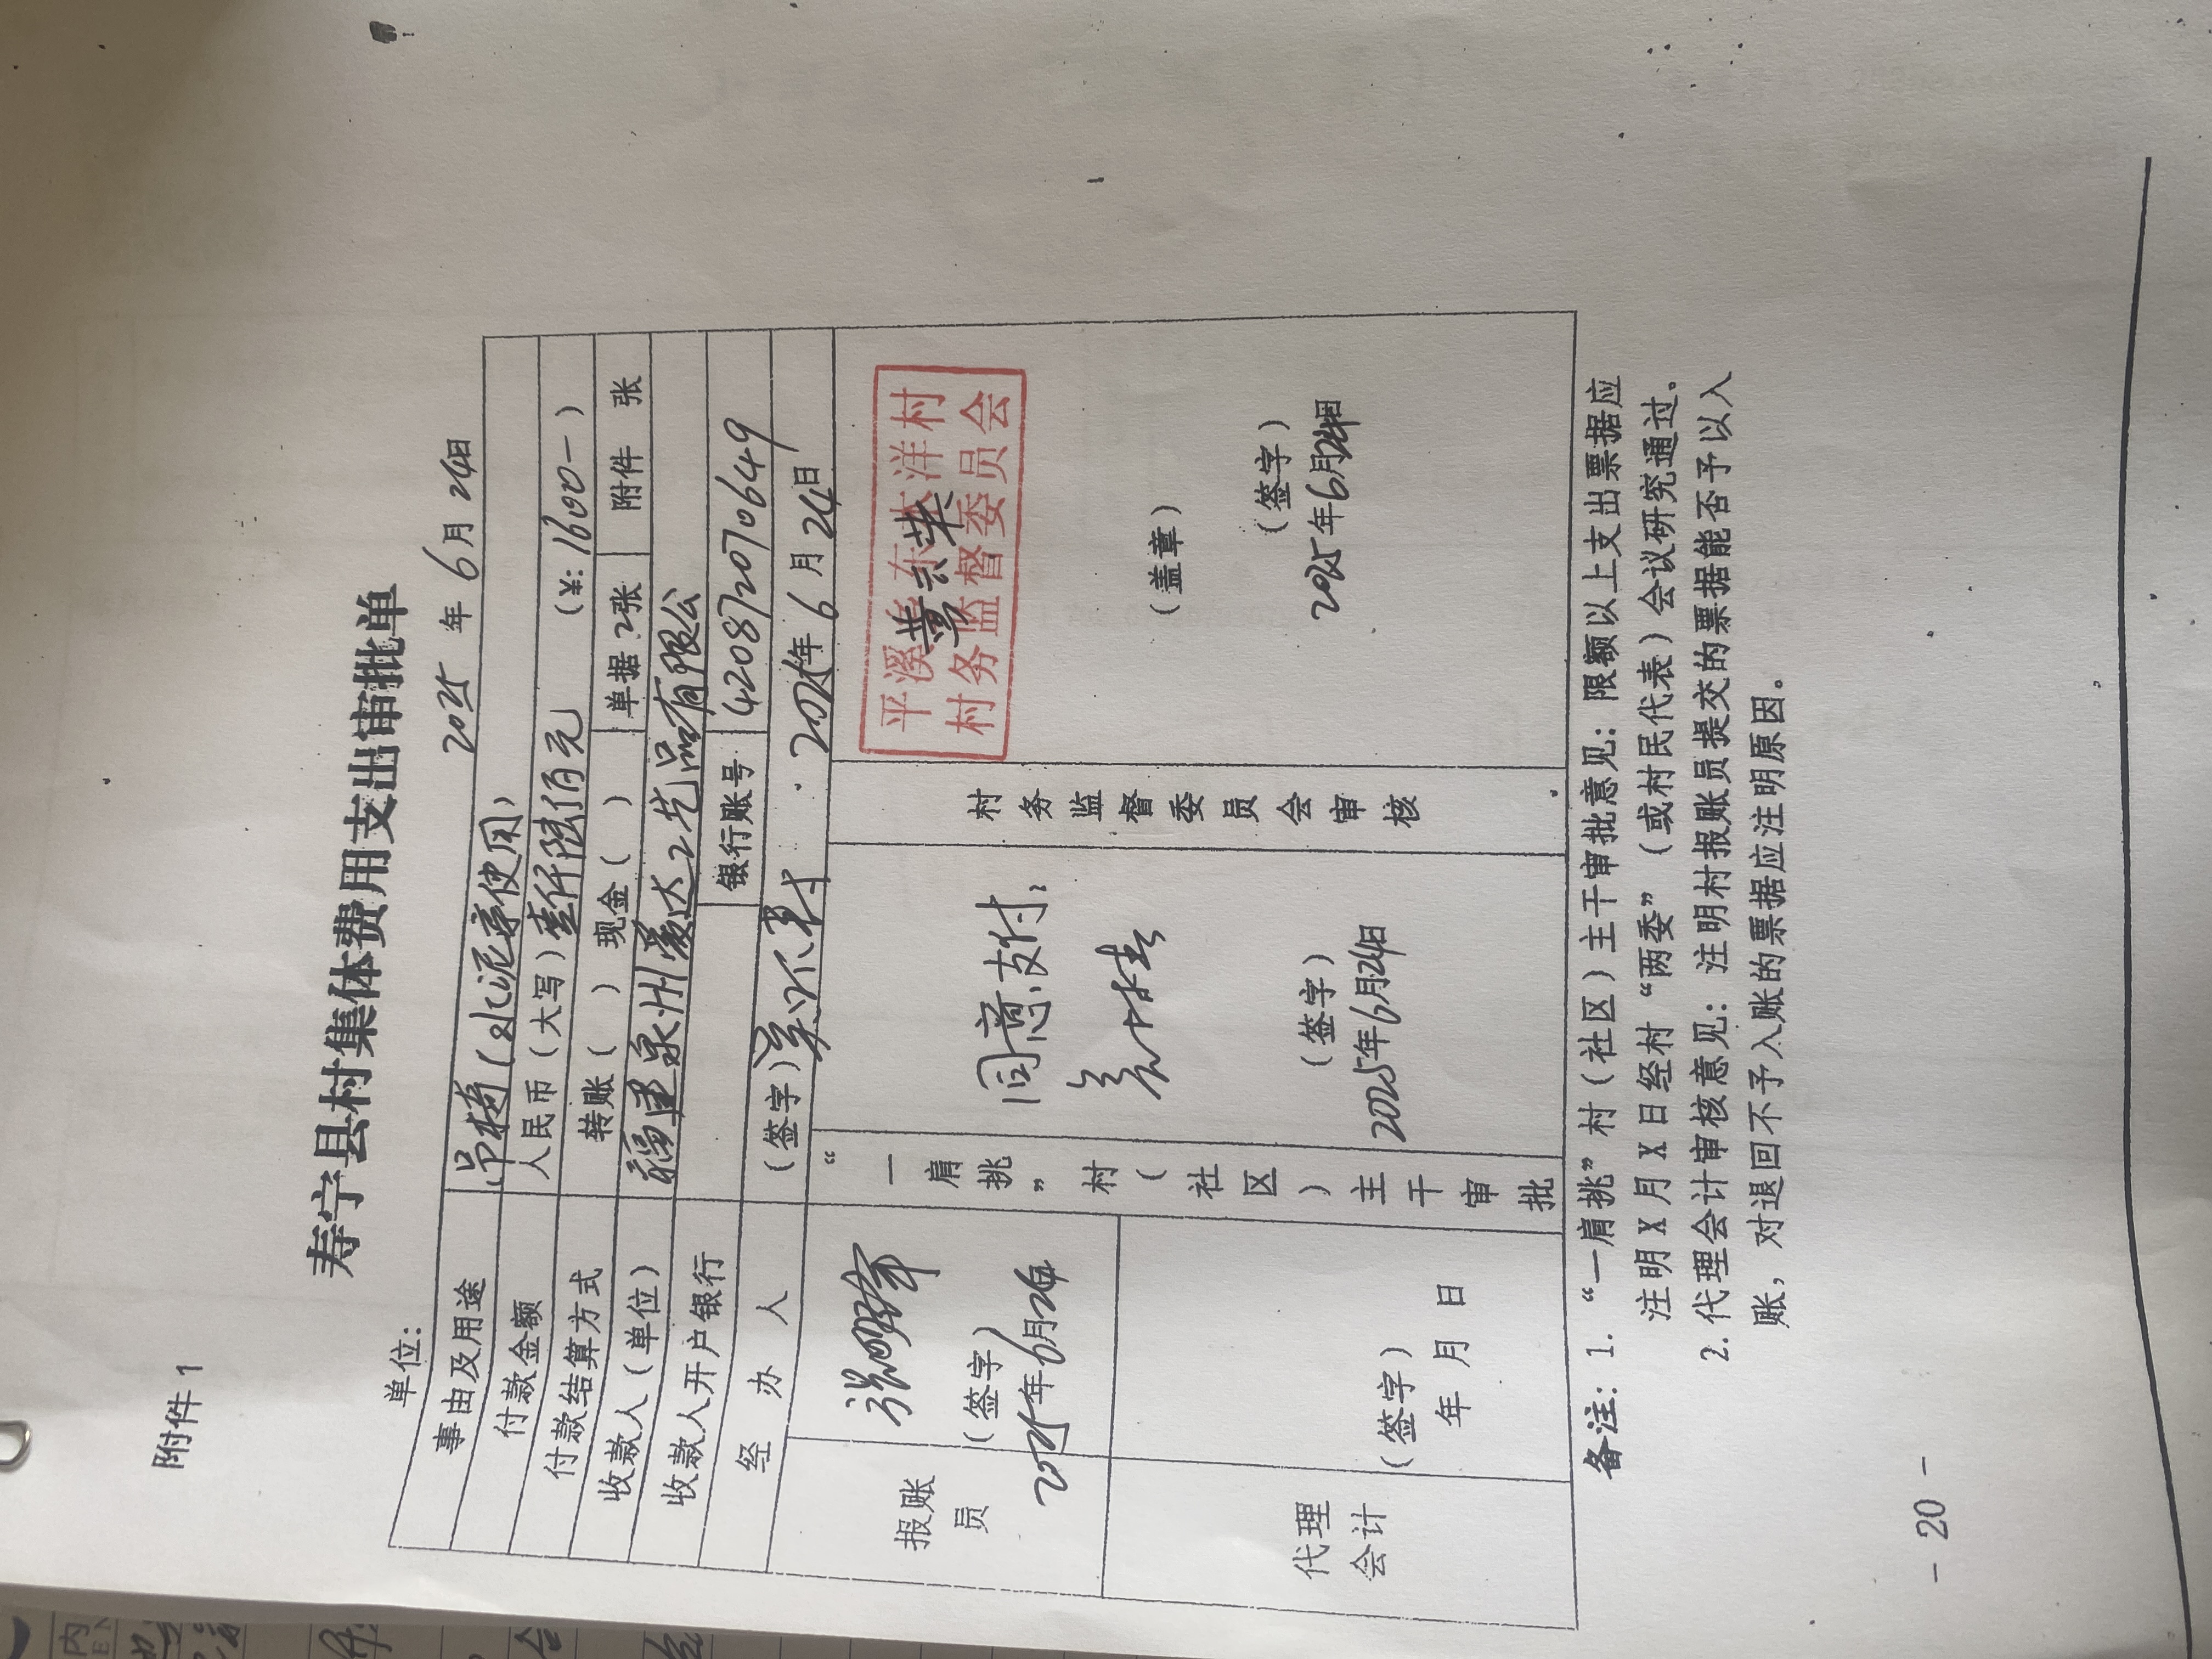 附件1
寿宁县村集体费用支出审批单
单位: 2025年6月24日
事由及用途 (水泥亭使用)
付款金额 人民币(大写)壹仟陆佰元 (¥:1600-)
付款结算方式 转账( ) 现金( ) 单据2张 附件 张
收款人(单位) 福建泉州 达工艺品有限公
收款人开户银行 银行账号 420872070649
经办人 (签字) 2025年6月24日
报账员
(签字)
2025年6月24
“一肩挑”村(社区)主干审批
同意支付
(签字)
2025年6月24日
村务监督委员会审核
平溪 东木洋村
村务监督委员会
(盖章)
(签字)
2025年6月24日
代理会计
(签字)
年 月 日
备注: 1.“一肩挑”村(社区)主干审批意见: 限额以上支出票据应
注明X月X日经村“两委”(或村民代表)会议研究通过.
2.代理会计审核意见: 注明村报账员提交的票据能否予以入
账, 对退回不予入账的票据应注明原因.
- 20 -
内